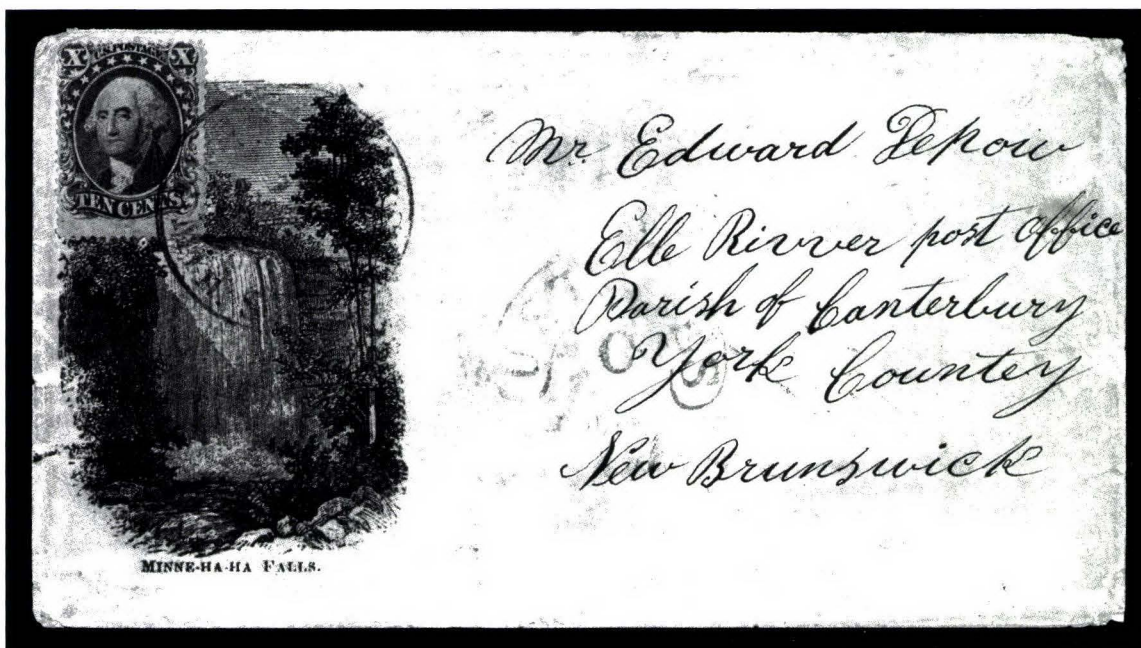 X U.S. POSTAGE X
TEN CENTS
Mr. Edward Depow
Elle Rivver post office
Parish of Canterbury
York Countey
New Brunswick
MINNE-HA-HA FALLS.